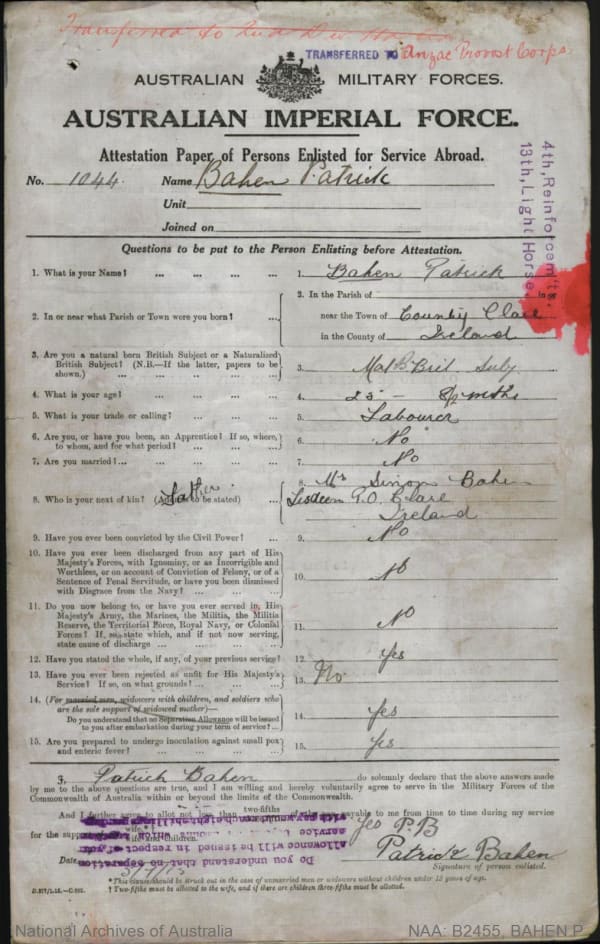 Transferred to
TRANSFERRED TO Anzac Provost Corps.
AUSTRALIAN MILITARY FORCES.
AUSTRALIAN IMPERIAL FORCE.
Attestation Paper of Persons Enlisted for Service Abroad.
No. 1044. Name Bahen Patrick
Unit
Joined on
4th, Reinforcem'ts
13th, Light Horse.
Questions to be put to the Person Enlisting before Attestation.
1. What is your Name? ... ... ... ... 1. Bahen Patrick
2. In or near what Parish or Town were you born? ... ... 2. In the Parish of
near the Town of County Clare
in the County of Ireland
3. Are you a natural born British Subject or a Naturalized
British Subject? (N.B.—If the latter, papers to be
shown.) ... ... ... ... ... 3. Nat B Brit Subj
4. What is your age? ... ... ... ... 4. 25 — mths
5. What is your trade or calling? ... ... ... 5. Labourer
6. Are you, or have you been, an Apprentice? If so, where,
to whom, and for what period? ... ... ... 6. No
7. Are you married? ... ... ... ... 7. No
8. Who is your next of kin? (Address to be stated) Father 8. Mr Simon Bahen
Lisdeen P.O. Clare
Ireland
9. Have you ever been convicted by the Civil Power? ... 9. No
10. Have you ever been discharged from any part of His
Majesty's Forces, with Ignominy, or as Incorrigible and
Worthless, or on account of Conviction of Felony, or of a
Sentence of Penal Servitude, or have you been dismissed
with Disgrace from the Navy? ... ... ... 10. No
11. Do you now belong to, or have you ever served in, His
Majesty's Army, the Marines, the Militia, the Militia
Reserve, the Territorial Force, Royal Navy, or Colonial
Forces? If so, state which, and if not now serving,
state cause of discharge ... ... ... ... 11. No
12. Have you stated the whole, if any, of your previous service? 12. Yes
13. Have you ever been rejected as unfit for His Majesty's
Service? If so, on what grounds? ... ... ... 13. No.
14. (For married men, widowers with children, and soldiers who
are the sole support of widowed mother)—
Do you understand that no Separation Allowance will be issued
to you after embarkation during your term of service? ... 14. Yes
15. Are you prepared to undergo inoculation against small pox
and enteric fever? ... ... ... ... 15. Yes
I, Patrick Bahen do solemnly declare that the above answers made
by me to the above questions are true, and I am willing and hereby voluntarily agree to serve in the Military Forces of the
Commonwealth of Australia within or beyond the limits of the Commonwealth.
And I further agree to allot not less than two-fifths payable to me from time to time during my service
for the support wife and children. Yes P.B
Do you understand that no separation
allowance will be issued in respect of
Date 5/7/15 Patrick Bahen
Signature of person enlisted.
*This clause should be struck out in the case of unmarried men or widowers without children under 18 years of age.
† Two-fifths must be allotted to the wife, and if there are children three-fifths must be allotted.
National Archives of Australia NAA: B2455, BAHEN P